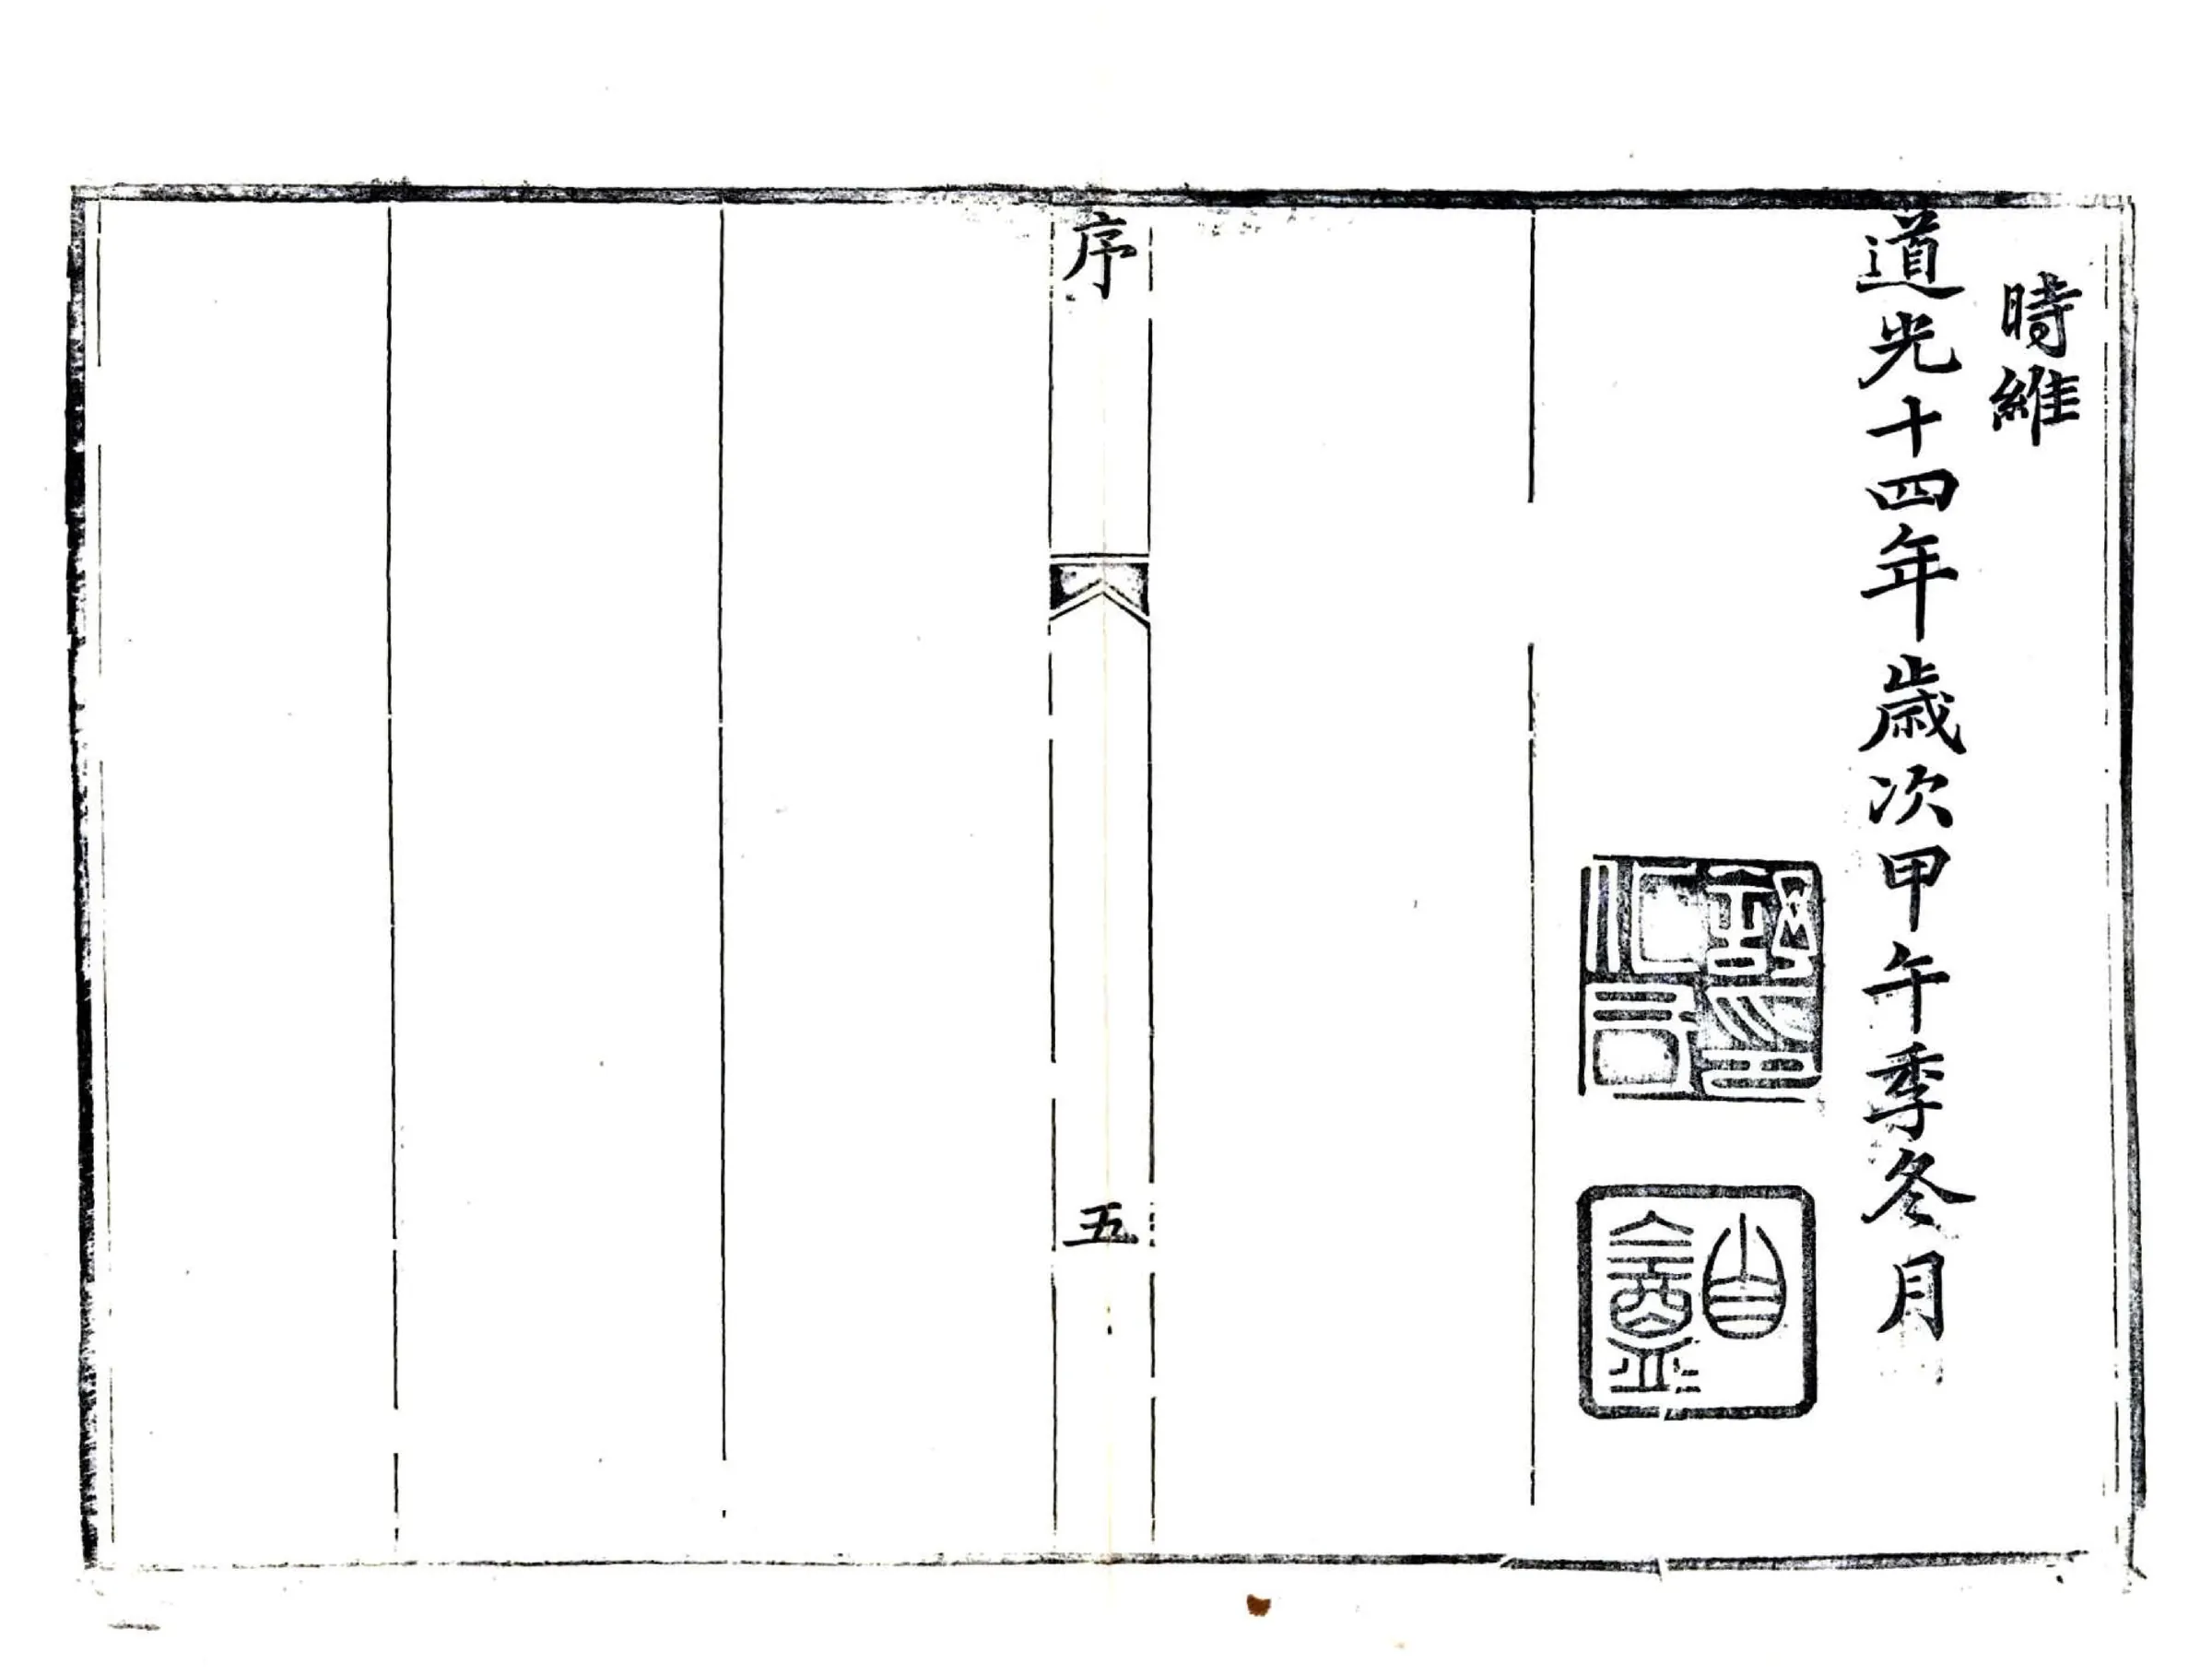 時維
道光十四年歲次甲午季冬月
序
五